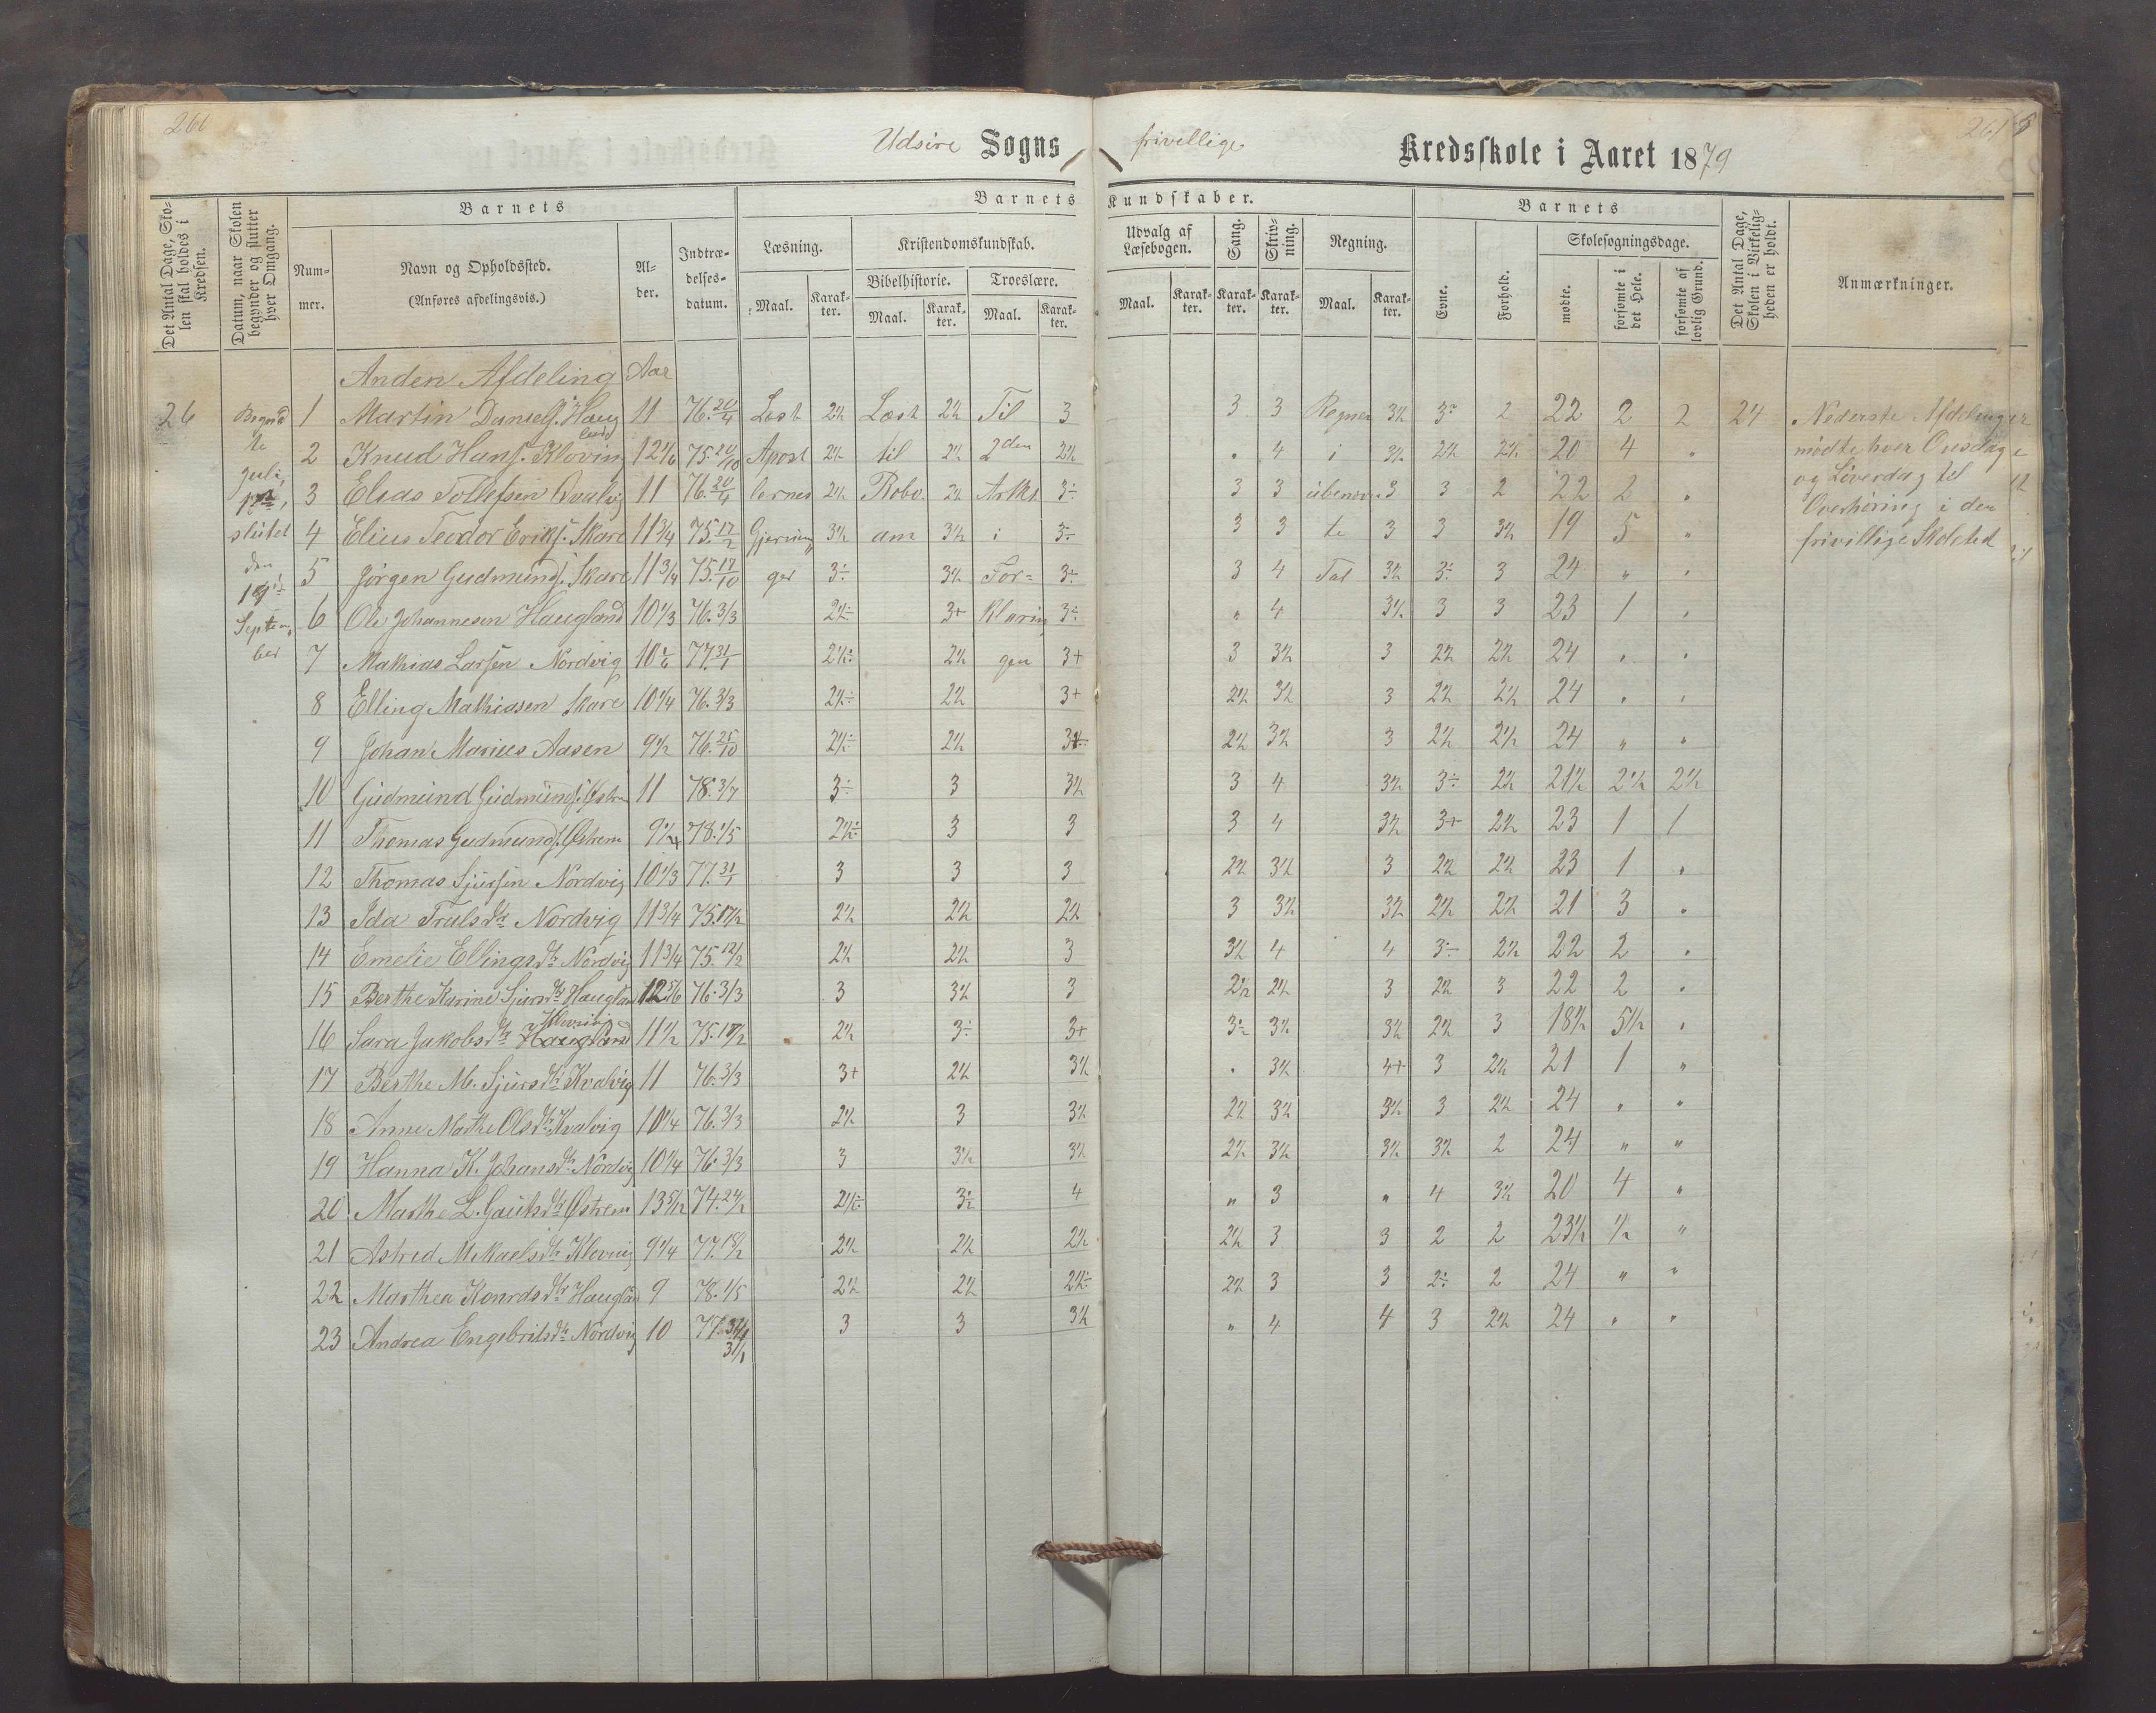 260
Udsire Sogns frivillige Kredsskole i Aaret 1879
261
Det Antal Dage, Skolen skal holdes i Kredsen.
Datum, naar Skolen begynder og slutter hver Omgang.
Barnets
Barnets Kundskaber.
Barnets
Det Antal Dage, Skolen i Virkeligheden er holdt.
Anmærkninger.
Nummer.
Navn og Opholdssted.
(Anføres afdelingsvis.)
Alder.
Indtrædelses-datum.
Læsning.
Kristendomskundskab.
Bibelhistorie.
Troeslære.
Udvalg af Læsebogen.
Sang.
Skrivning.
Regning.
Evne.
Forhold.
Skolesøgningsdage.
Maal. Karakter. Maal. Karakter. Maal. Karakter. Maal. Karakter. Karakter. Karakter. Maal. Karakter. mødte. forsømte i det Hele. forsømte af lovlig Grund.
Anden Afdeling Aar
26 1 Martin Daniels. Haugland 11 76.20/4 Læst 2½ Læst 2½ Til 3 3 3 Regner 3½ 3÷ 2 22 2 2 24
2 Knud Hans. Klovning 12 1/6 75.20/10 Apost 2½ til 2½ 2den 2½ " 4 i 3½ 2½ 2½ 20 4 "
3 Elias Tollefsen Qvalvig 11 76.20/4 lernes 2½ Robo. 2½ Artkl. 3÷ 3 3 ubenævn- 3 3 2 22 2 "
4 Elius Teodor Eriks. Skare 11 3/4 75.17/2 Gjerning 3½ am 3½ i 3÷ 3 3 te 3 3 3½ 19 5 "
5 Jørgen Gudmunds. Skare 11 3/4 75.17/10 ger 3÷ 3½ For- 3÷ 3 4 Tal 3½ 3÷ 3 24 " "
6 Ole Johannesen Haugland 10 1/3 76.3/3 2½÷ 3+ klarin 3÷ " 4 3½ 3 3 23 1 "
7 Mathias Larsen Nordvig 10 1/6 77.31/1 2½÷ 2½ gen 3+ 3 3½ 3 2½ 2½ 24 " "
8 Elling Mathiasen Skare 10 1/4 76.3/3 2½÷ 2½ 3+ 2½ 3½ 3 2½ 2½ 24 " "
9 Johan Marius Aasen 9½ 76.25/10 2½÷ 2½ 2½ 3½ 3 2½ 2½ 24 " "
10 Gudmund Gudmunds. Østre 11 78.3/7 3÷ 3 3½ 3 4 3½ 3÷ 2½ 21½ 2½ 2½
11 Thomas Gudmunds. Østrem 78.1/5 2½÷ 3 3 3 4 3½ 3+ 2½ 23 1 1
12 Thomas Sjursen Nordvig 10 1/3 77.31/1 3 3 3 2½ 3½ 3 2½ 2½ 23 1 "
13 Ida Trulsdtr Nordvig 11 3/4 75.17/2 2½ 2½ 2½ 3 3½ 3½ 2½ 2½ 21 3 "
14 Emelie Ellingsdtr Nordvig 11 3/4 75.12/2 2½ 2½ 3 3½ 4 4 3÷ 2½ 22 2 "
15 Berthe Karine Sjursdtr Haugland 12 5/6 76.3/3 3 3½ 3 2½ 2½ 3 2½ 3 22 2 "
16 Sara Jakobsdtr 11½ 75.17/2 2½ 3÷ 3+ 3÷ 3½ 3½ 2½ 3 18½ 5½ "
17 Berthe M. Sjursdtr Kvalvig 11 76.3/3 3+ 2½ 3½ " 3½ 4+ 3 2½ 21 1 "
18 Anne Marthe Olsdtr Kvalvig 10 1/4 76.3/3 2½ 3 3½ 2½ 3½ 3½ 3 2½ 24 " "
19 Hanna K. Johansdtr Nordvig 10 1/4 76.3/3 3 3½ 3½ 2½ 3½ 3½ 3½ 2 24 " "
20 Marthe L. Gautsdtr Østrem 13 5/12 74.24/2 2½÷ 3÷ 4 " 3 " 4 3½ 20 4 "
21 Astred Mikaelsdtr Klovnig 9 1/4 77.18/2 2½ 2½ 2½ 2½ 3 3 2 2 23½ ½ "
22 Marthea Konrdsdtr Haugla 9 78.1/5 2½ 2½ 2½÷ 2½ 3 3 2÷ 2 24 " "
23 Andrea Engebritsdtr Nordvig 10 77.31/1 3 3 3½ " 4 4 3 2½ 24 " "
Juli,
sluttet
den
Septem-
ber
Nederste Afdelinger
mødte hver Onsdag
og Løverdag til
Overhøring i den
frivillige Skoletid